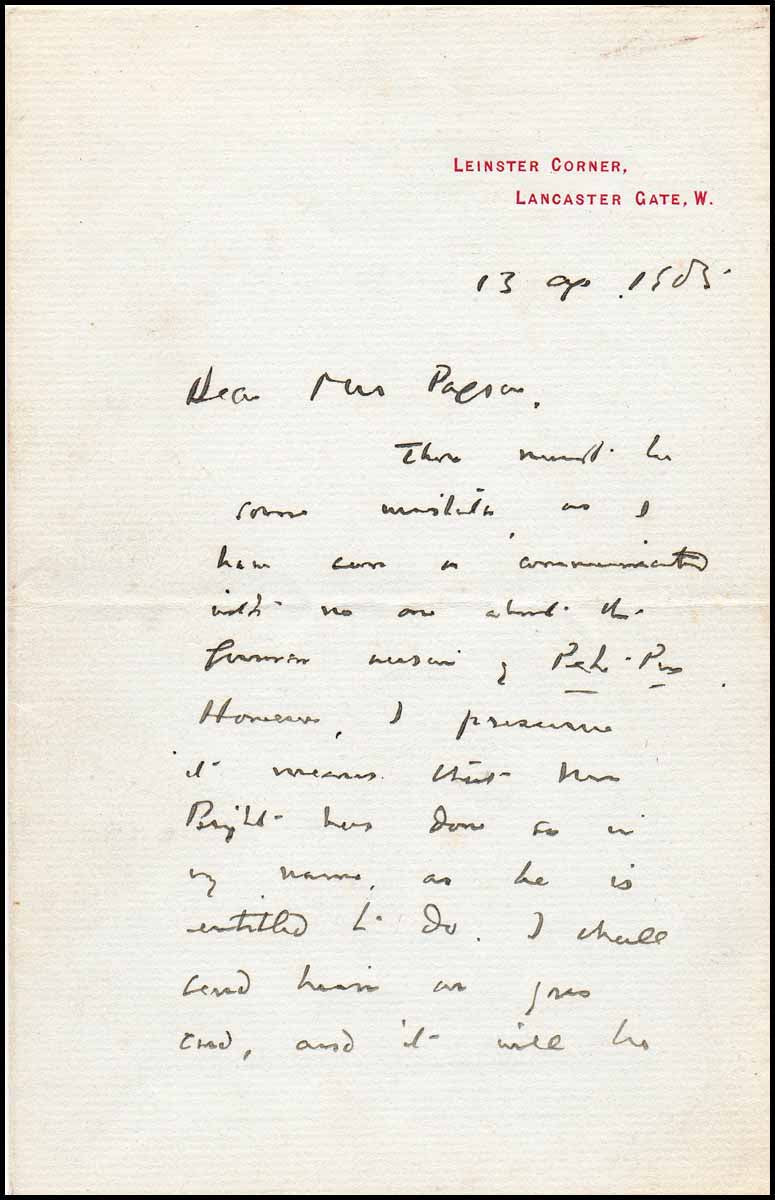 LEINSTER CORNER,
LANCASTER GATE, W.
13 Ap. 1905.
Dear Mrs
There must be
some mistake, as I
have communicated
with no one about the
German version of Peter Pan.
However, I presume
it means that Mr
Bright has done so in
my name, as he is
entitled to do. I shall
send him on yrs
and, and it will be